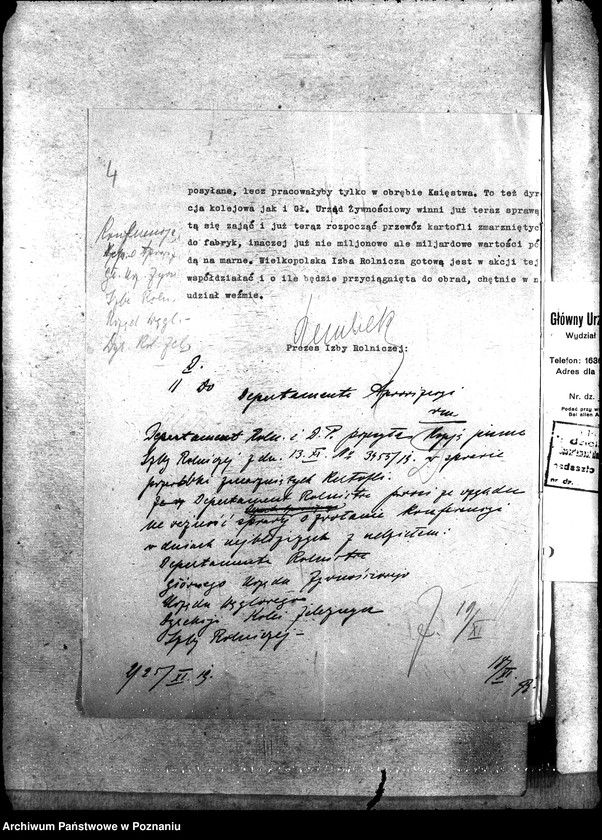 4
posyłane, lecz pracowałyby tylko w obrębie Księstwa. To też dyr
cja kolejowa jak i Gł. Urząd Żywnościowy winni już teraz sprawą
tą się zająć i już teraz rozpocząć przewóz kartofli zmarzniętyc
do fabryk, inaczej już nie miljonowe ale miljardowe wartości pó
dą na marne. Wielkopolska Izba Rolnicza gotową jest w akcji tej
współdziałać i o ile będzie przyciągnięta do obrad, chętnie w n
udział weźmie.
Konferencja
Izba Roln.
Urząd Węgl.
Dyr. Kol. Żel.
Prezes Izby Rolniczej:
Do
Departamentu Aprowizacji
Departament Roln. i D. P. przesyła Kopję pisma
Izby Rolniczej z dn. 13. XI. № 3455/19. w sprawie
zmarzniętych Kartofli.
Departament Rolnictwa prosi ze względu
na ważność sprawy o zwołanie Konferencji
w dniach najbliższych z udziałem:
Departamentu Rolnictwa
Głównego Urzędu Żywnościowego
Urzędu Węglowego
Dyrekcji Kolei Żelaznych
Izby Rolniczej –
25/XI 19.
19/XI
18/XI
Główny Urz
Wydział
Telefon: 1636
Adres dla
Nr. dz.
Podać przy w
Bei allen A
nadeszło
nr dr.
Archiwum Państwowe w Poznaniu